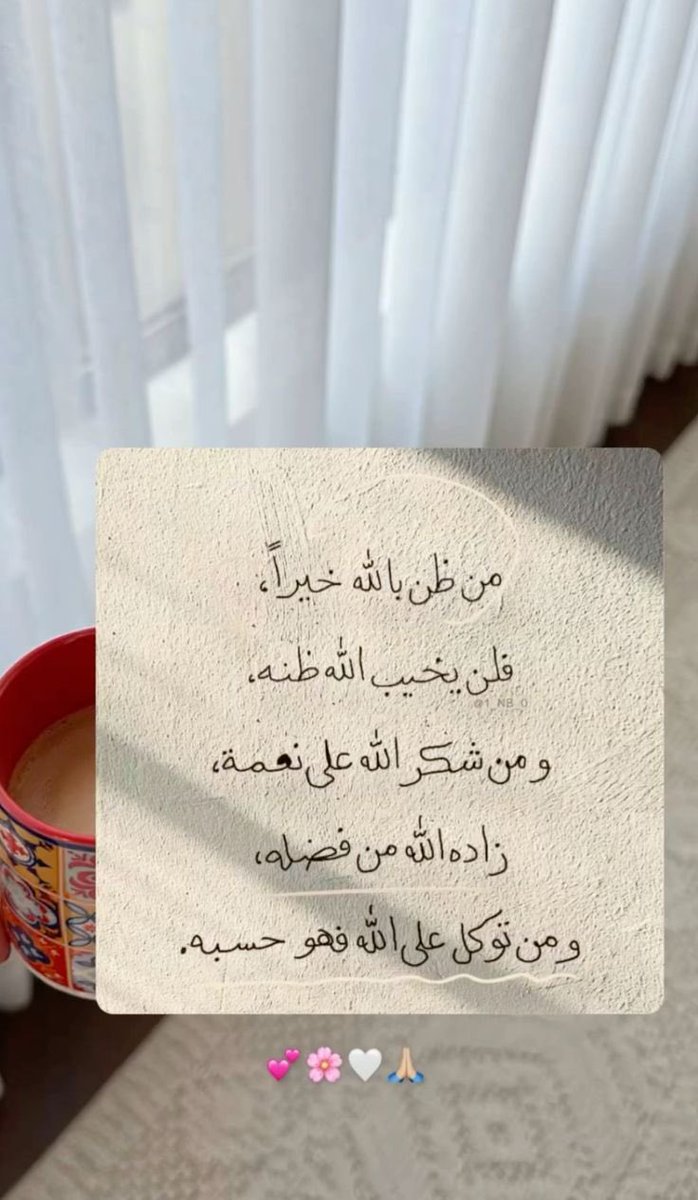 من ظن بالله خيراً،
فلن يخيب الله ظنه،
@1_NB_0
ومن شكر الله على نعمة،
زاده الله من فضله،
ومن توكل على الله فهو حسبه.